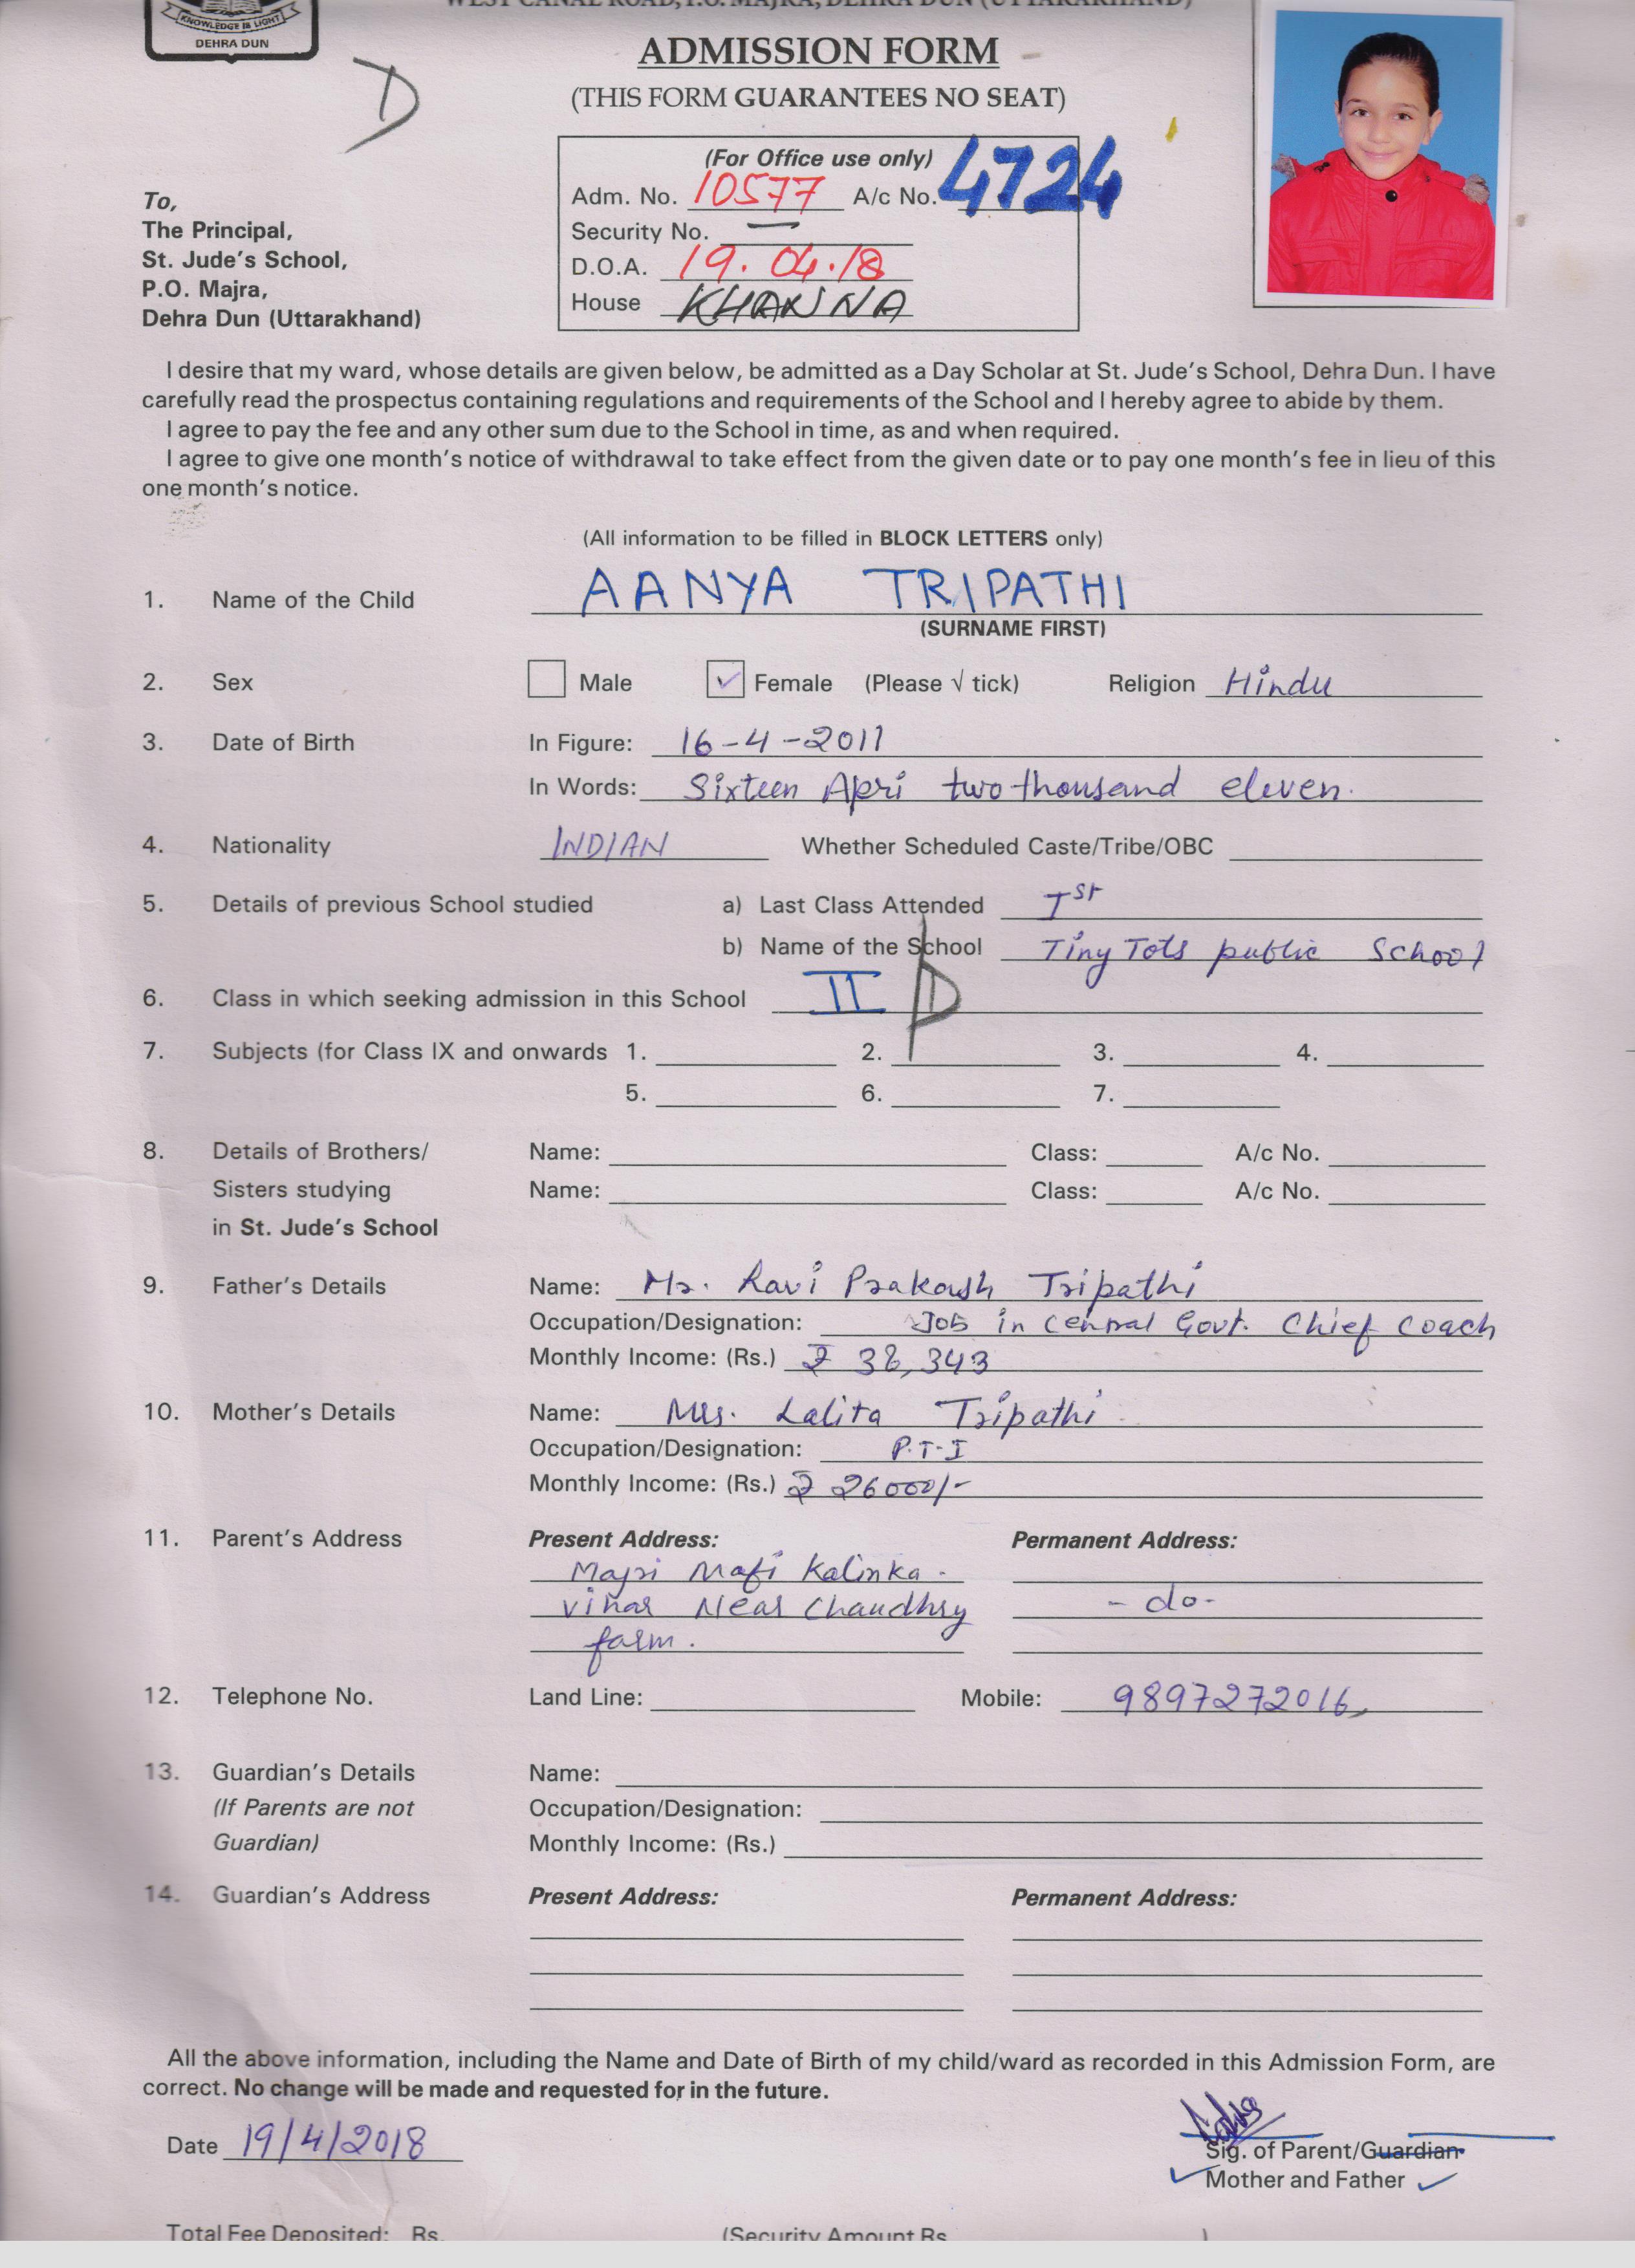 WEST CANAL ROAD, P.O. MAJRA, DEHRA DUN (UTTARAKHAND)
KNOWLEDGE IS LIGHT
DEHRA DUN
D
ADMISSION FORM
(THIS FORM GUARANTEES NO SEAT)
(For Office use only)
Adm. No. 10577 A/c No. 4724
Security No. —
D.O.A. 19.04.18
House KHANNA
To,
The Principal,
St. Jude's School,
P.O. Majra,
Dehra Dun (Uttarakhand)
I desire that my ward, whose details are given below, be admitted as a Day Scholar at St. Jude's School, Dehra Dun. I have
carefully read the prospectus containing regulations and requirements of the School and I hereby agree to abide by them.
I agree to pay the fee and any other sum due to the School in time, as and when required.
I agree to give one month's notice of withdrawal to take effect from the given date or to pay one month's fee in lieu of this
one month's notice.
(All information to be filled in BLOCK LETTERS only)
1. Name of the Child AANYA TRIPATHI
(SURNAME FIRST)
2. Sex Male ✓ Female (Please √ tick) Religion Hindu
3. Date of Birth In Figure: 16-4-2011
In Words: Sixteen Apri two thousand eleven.
4. Nationality INDIAN Whether Scheduled Caste/Tribe/OBC
5. Details of previous School studied a) Last Class Attended Ist
b) Name of the School Tiny Tots public School
6. Class in which seeking admission in this School II D
7. Subjects (for Class IX and onwards 1. 2. 3. 4.
5. 6. 7.
8. Details of Brothers/ Name: Class: A/c No.
Sisters studying Name: Class: A/c No.
in St. Jude's School
9. Father's Details Name: Mr. Ravi Prakash Tripathi
Occupation/Designation: Job in Central Govt. Chief Coach
Monthly Income: (Rs.) ₹ 38,343
10. Mother's Details Name: Mrs. Lalita Tripathi
Occupation/Designation: P.T-I
Monthly Income: (Rs.) ₹ 26000/-
11. Parent's Address Present Address: Permanent Address:
Majri Mafi Kalinka -
vihar Near Chaudhry - do -
farm.
12. Telephone No. Land Line: Mobile: 9897272016
13. Guardian's Details Name:
(If Parents are not Occupation/Designation:
Guardian) Monthly Income: (Rs.)
14. Guardian's Address Present Address: Permanent Address:
All the above information, including the Name and Date of Birth of my child/ward as recorded in this Admission Form, are
correct. No change will be made and requested for in the future.
Date 19/4/2018
Sig. of Parent/Guardian
✓ Mother and Father ✓
Total Fee Deposited: Rs. (Security Amount Rs. )